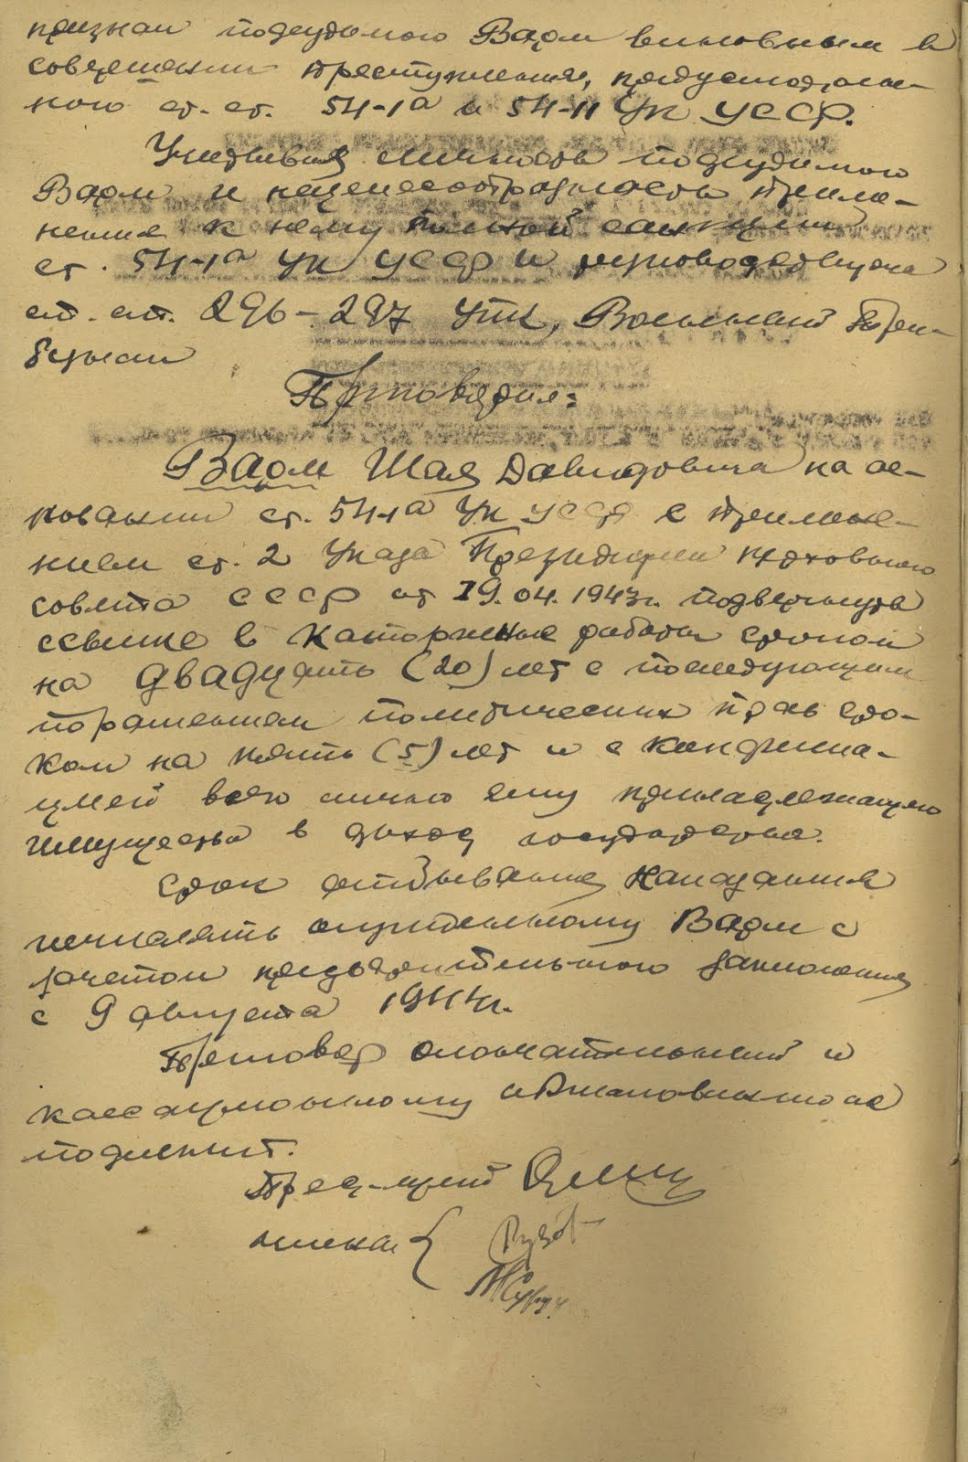 признал подсудимого Вадм виновным в
совершении преступления, предусмотрен-
ного ст. ст. 54-1а и 54-11 УК УССР.
Учитывая личность подсудимого
Вадм и нецелесообразность приме-
нения к нему полной санкции
ст. 54-1а УК УССР и руководствуясь
ст. ст. 296-297 УПК, Военный Три-
бунал
Приговорил:
Вадм Шая Давидовича на ос-
новании ст. 54-1а УК УССР с примене-
нием ст. 2 Указа Президиума Верховного
совета СССР от 19.04.1943г. подвергнуть
ссылке в каторжные работы сроком
на двадцать (20) лет с последующим
поражением политических прав сро-
ком на пять (5) лет и с конфиска-
цией всего лично ему принадлежащего
имущества в доход государства.
Срок отбывания наказания
исчислять осужденному Вадм с
зачетом предварительного заключения
с 9 августа 1944г.
Приговор окончательный и
кассационному обжалованию не
подлежит.
Пред-щий
члены {